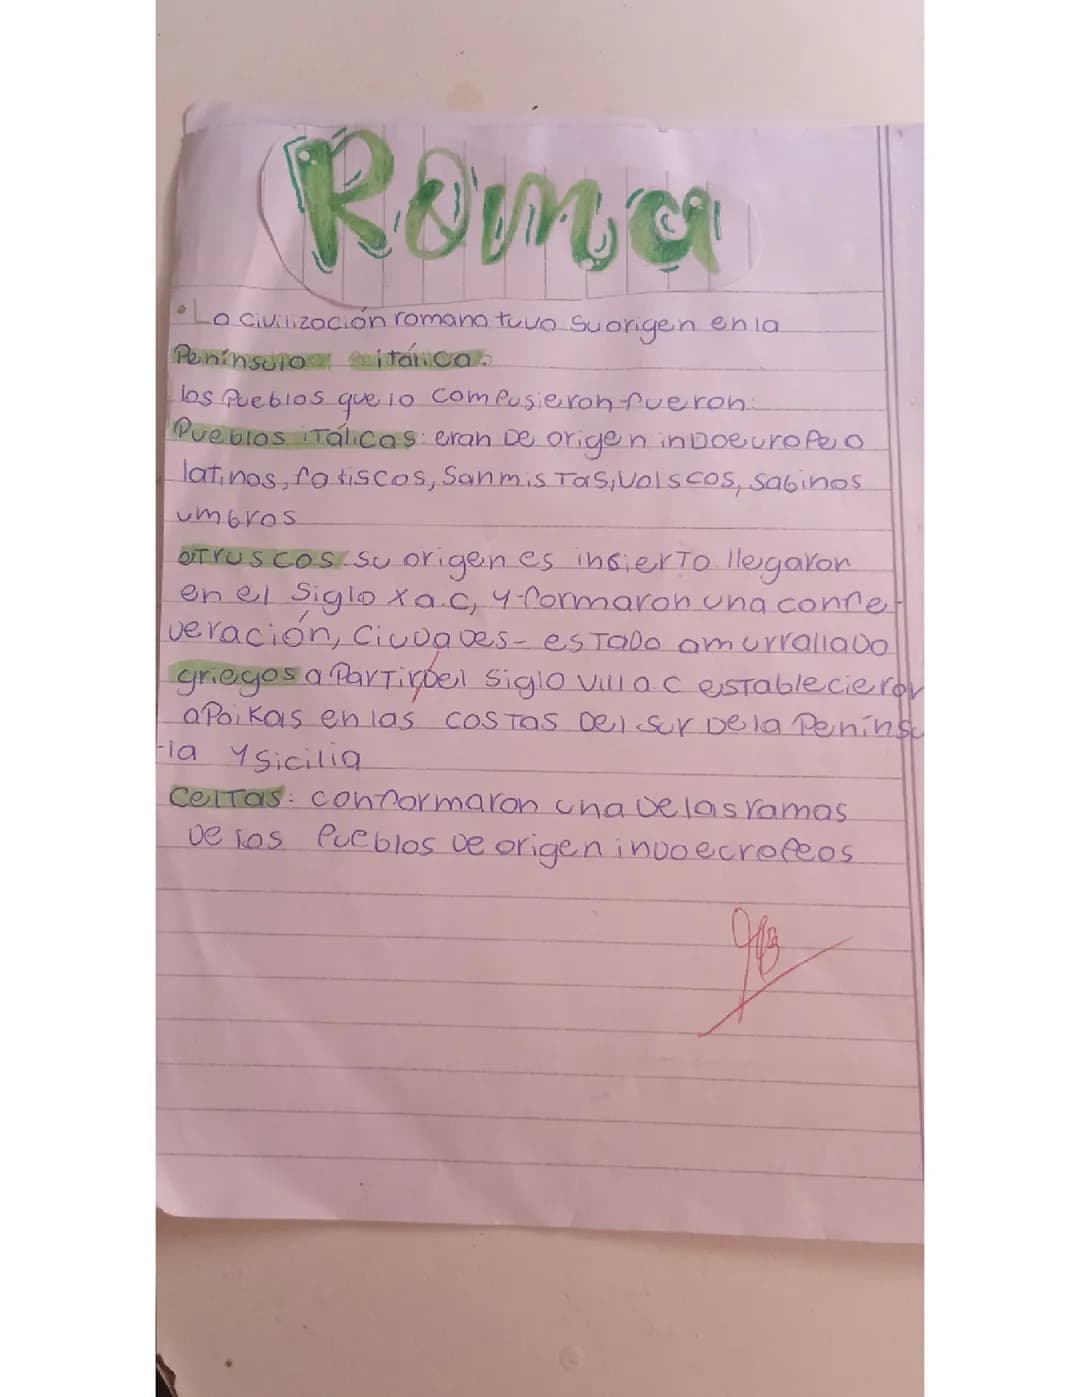 Roma
• La civilización romana tuvo su origen en la
Península itálica.
los Pueblos que lo compusieron fueron:
Pueblos iTálicas: eran De origen inDoeuropeo
latinos, fatiscos, SanmisTas, Volscos, Sabinos
umbros
oTruscos su origen es insierTo llegaron
en el Siglo X a.c, y formaron una confe
veración, CiuDaDes - esTaDo amurrallaDo
griegos a ParTir Del Siglo VIII a.c esTablecieron
apoikas en las cosTas Del sur De la Penínsu
-la y Sicilia
CelTas: conformaron una De las ramas
De los Pueblos De origen inDoecropeos